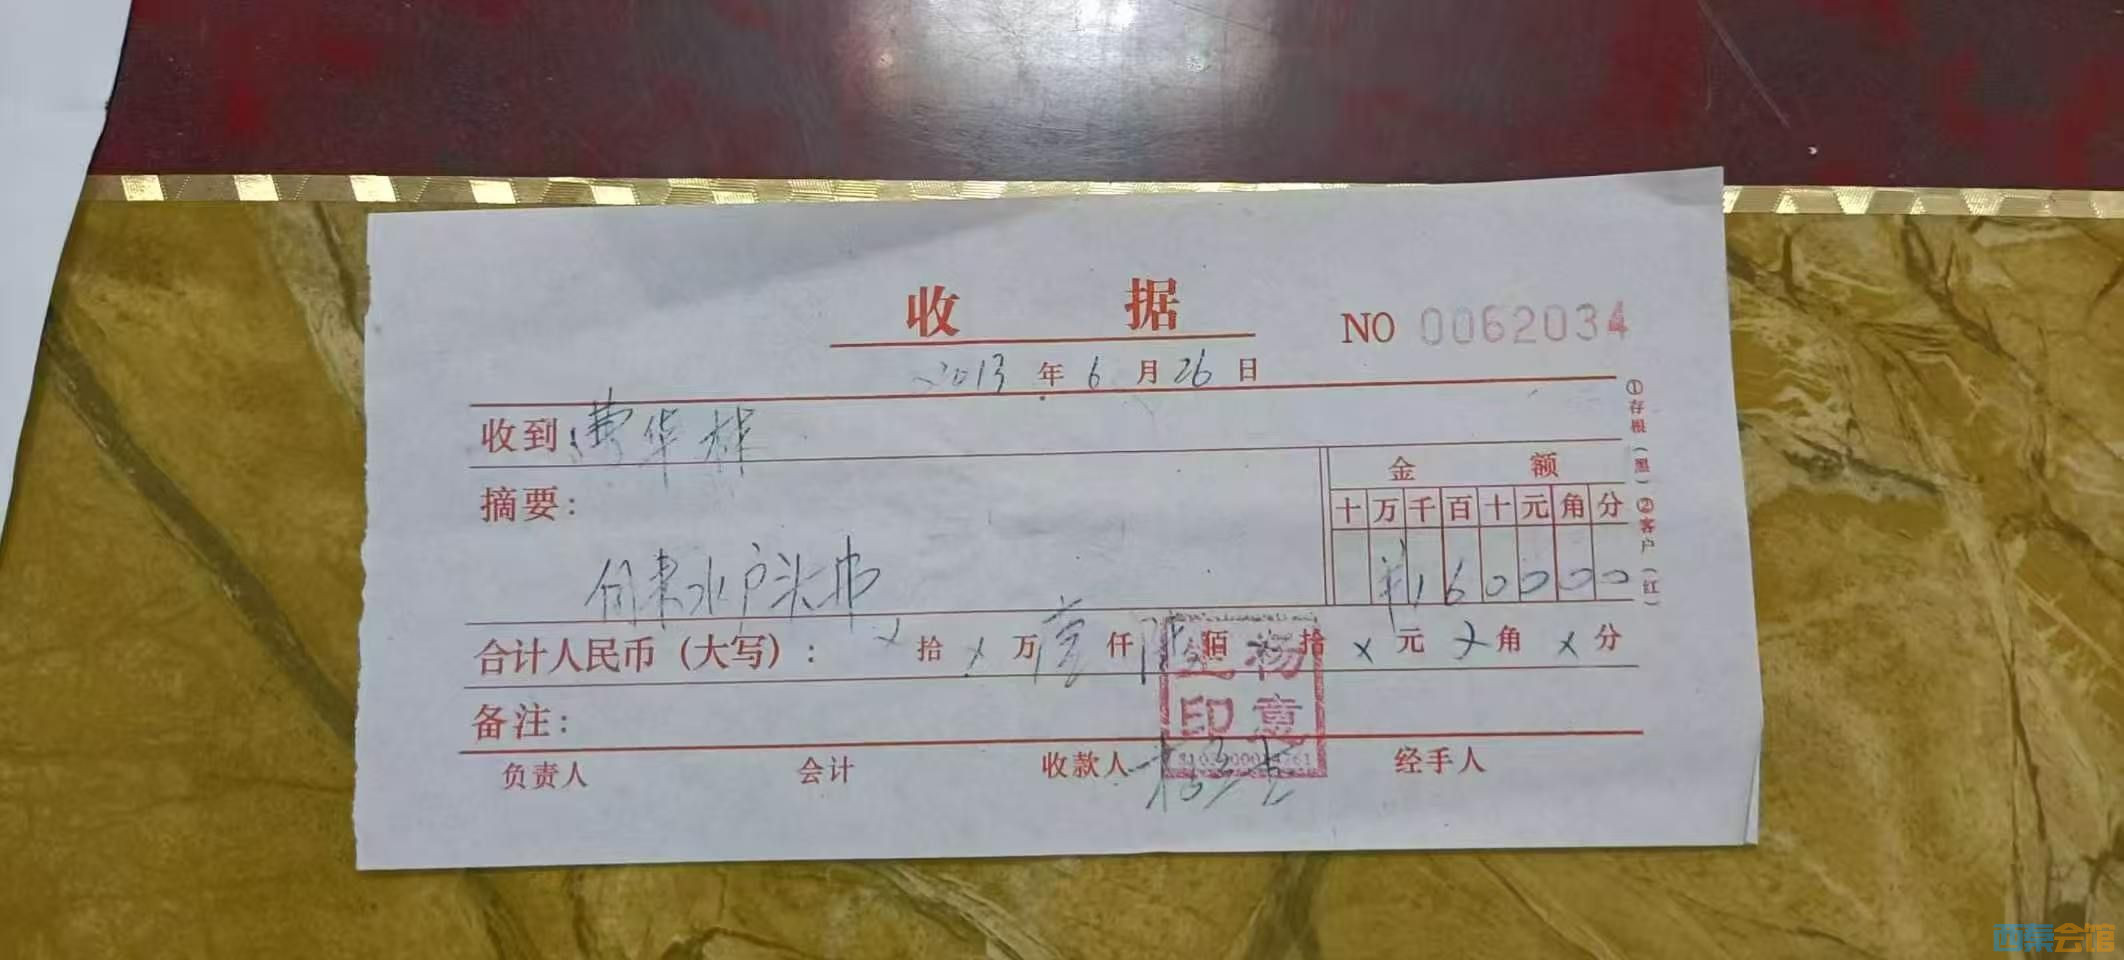 收 据
NO 0062034
2013 年 6 月 26 日
收到 费华祥
摘要：
金 额
十 万 千 百 十 元 角 分
自来水户头币
¥ 1 6 0 0 0 0
合计人民币（大写）： × 拾 × 万 壹 仟 陆 佰 × 拾 × 元 × 角 × 分
印 章
备注：
负责人 会计 收款人 经手人
①存根（黑）②客户（红）
西渠会馆